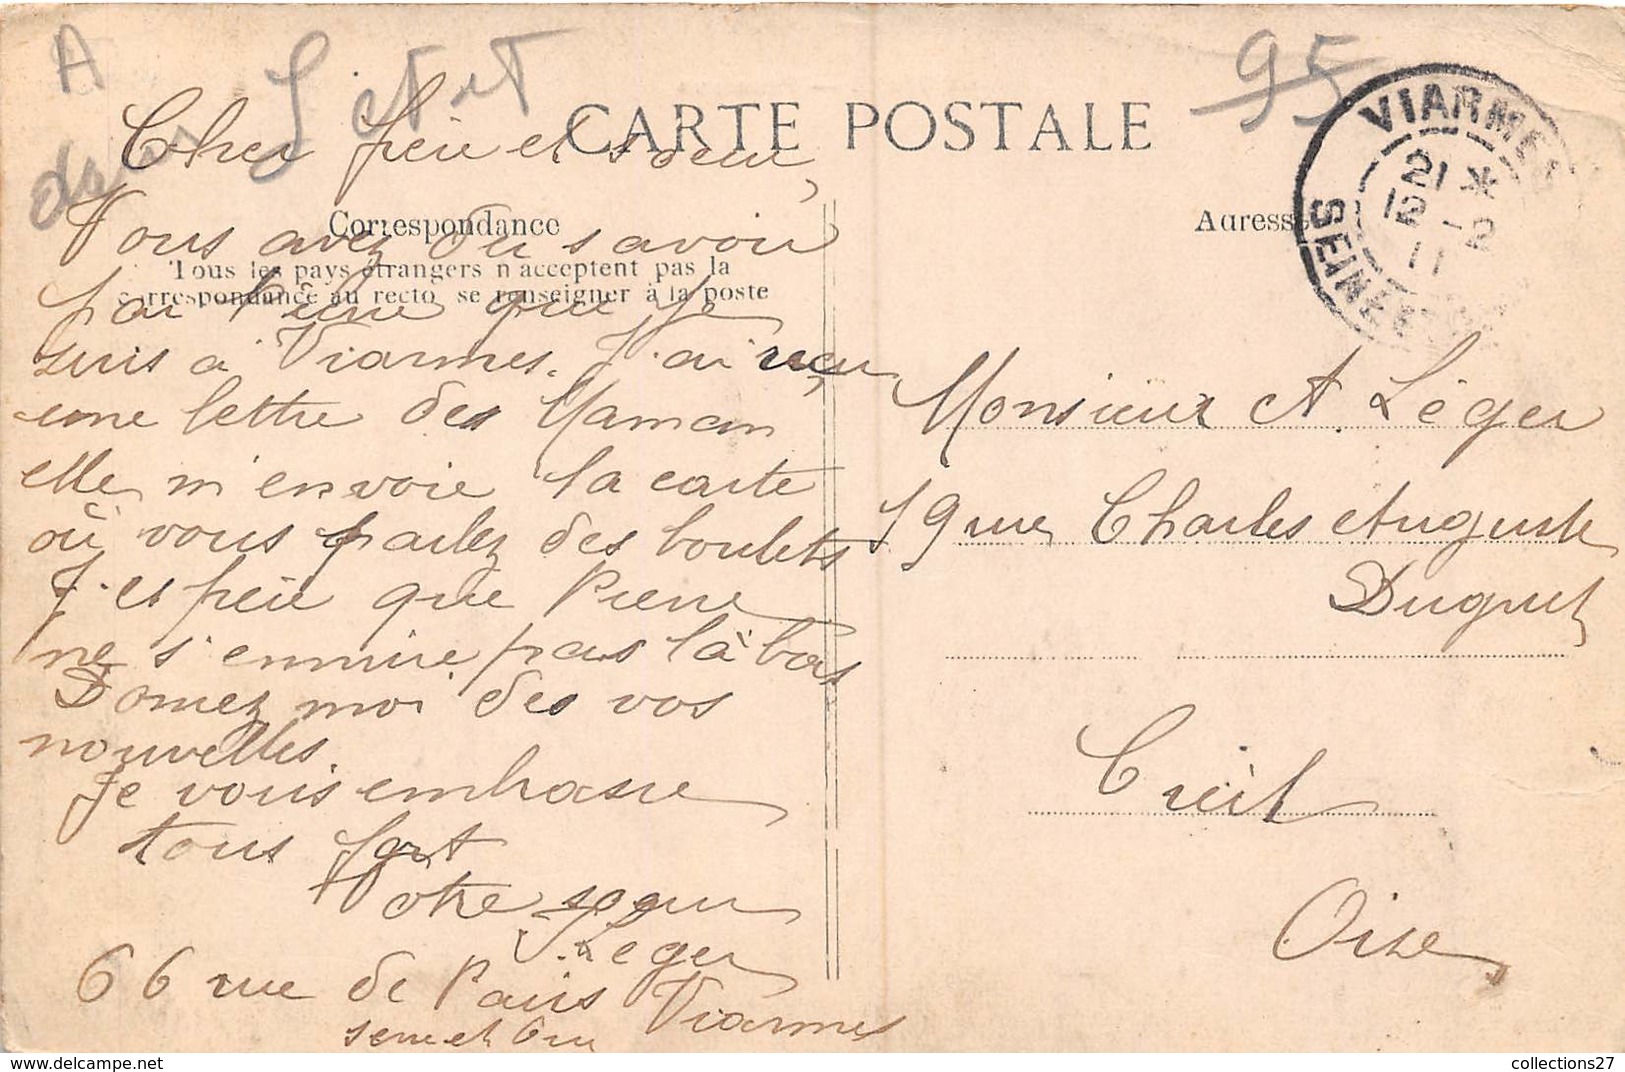 A
95
dans S et T
CARTE POSTALE
Correspondance
Tous les pays étrangers n'acceptent pas la
correspondance au recto se renseigner à la poste
Adresse
VIARMES
21 *
12 - 2
11
SEINE ET
Cher frère et soeur,
Vous avez du savoir
par que je
suis à Viarmes. J'ai reçu
une lettre des Maman
elle m'envoie la carte
où vous parlez des boulets
J'espère que Pierre
ne s'ennuie pas là bas
Donnez moi des vos
nouvelles.
Je vous embrasse
tous fort
Votre soeur
Leger
66 rue de Paris Viarmes
seine et Oise
Monsieur A. Léger
19 rue Charles Auguste
Duguet
Creil
Oise
collections27